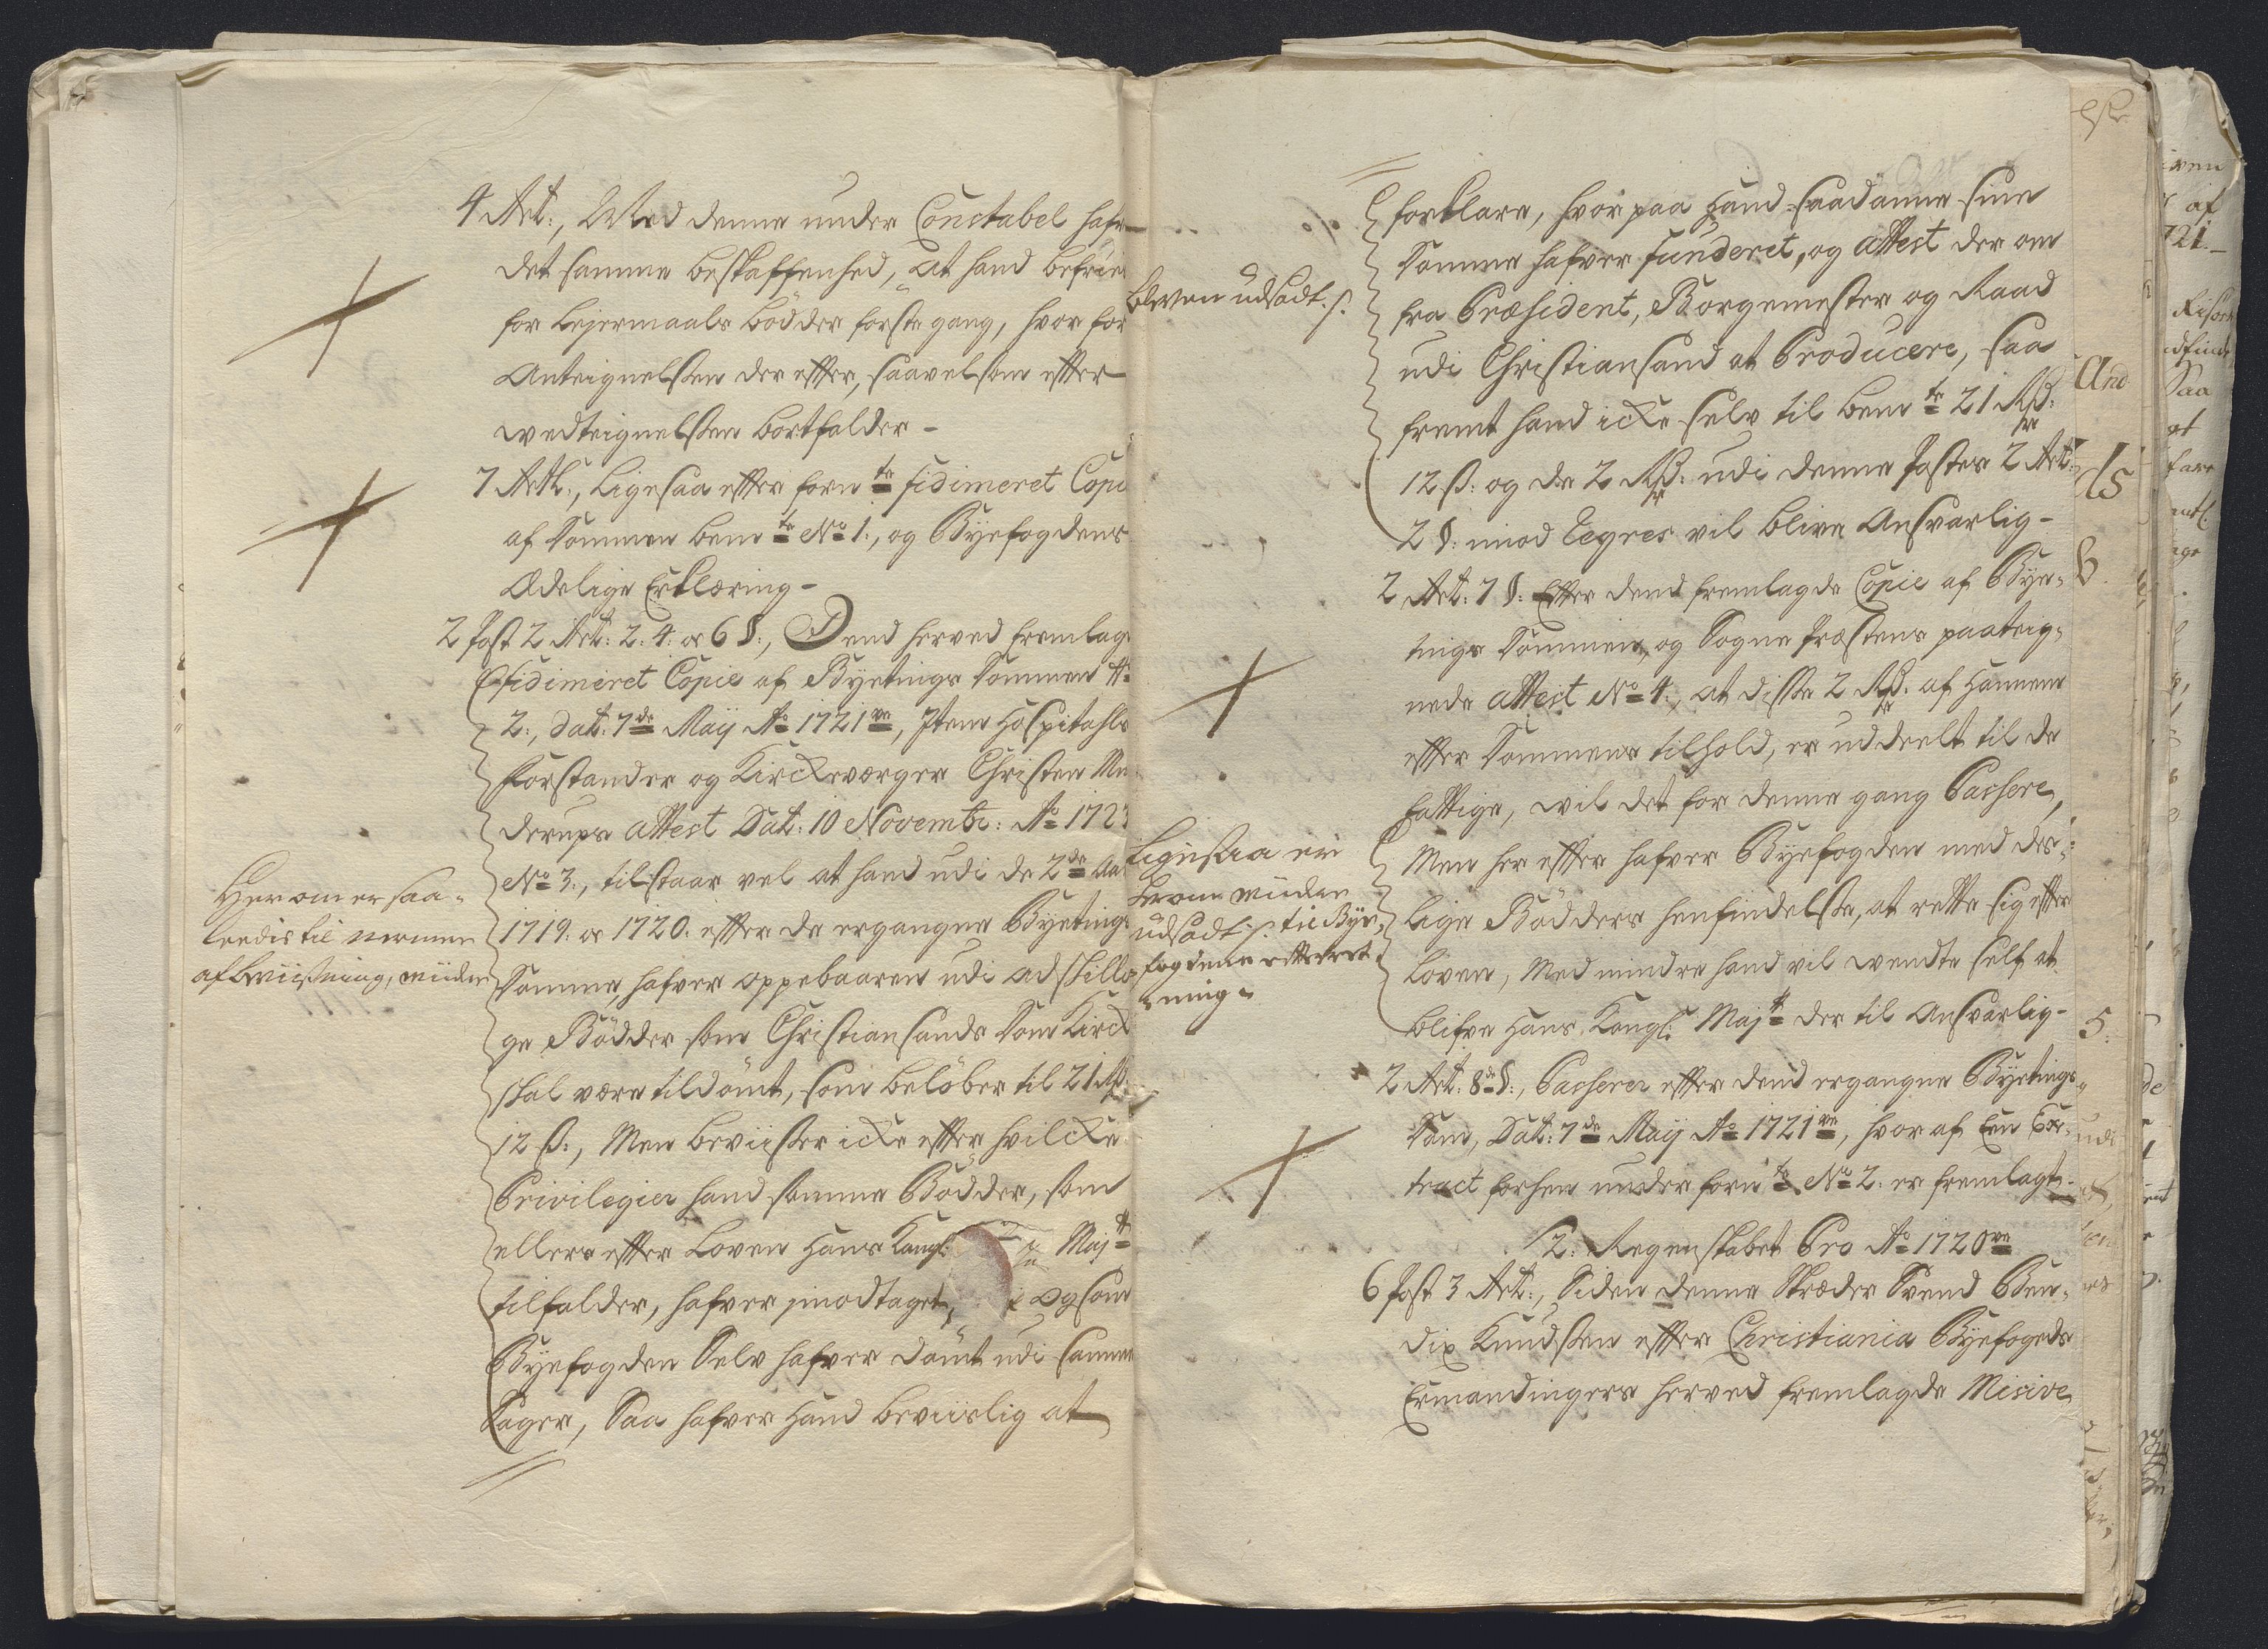 4 Art:, Med denne under Constabel hafr
det samme beskaffenhed, at hand befries
for Lejermaals bödder förste gang, hvor for
Anteignelssen der effter, saavelsom effter
wedteignelssen bortfalder -
7 Artl:, Ligesaa effter forn te fidimeret Copi
af Dommen bem te No 1:, og Byefogdens
Edelige Erklæring -
2 Post 2 Art: 2: 4: oc 6 §:, Dend herved fremlag
fidimeret Copie af Byetings Dommen
2:, dat: 7 de Maij Ao 1721 ve, Item Hospitahls
forstander og Kirckeværger Christen Me
derups attest Dat: 10 Novembr: Ao 172
No 3:, tilstaar vel at hand udi de 2 de Aa
1719: oc 1720: effter de ergangne Byetings
Domme, hafver oppebaaren udi ad skillo
ge Bödder som Christiansands Dom Kirck
skal være tildömt, som belöber til 21 Rd:
12 s:, Men beviisser icke effter hvilcke
Privilegier hand samme Bödder, som
ellers effter Loven Hans Kongl: Maj tt
tilfalder, hafver imodtaget, og som
Byefogden Selv hafver dömt udi samme
Sager, Saa hafver Hand beviislig at
Herom er saa-
leedis til nermere
afbeviissning, minden
forklare, hvor paa Hand saadanne sine
Domme hafver funderet, og attest der om
fra Præsident, Borgemester og Raad
udi Christiansand at Producere, saa
fremt hand icke selv til bem te 21 Rd:
12 s: og de 2 Rd: udi denne Postes 2 Art:
2 §: imod Regres vil blive Ansvarlig -
2 Art: 7 §: Effter dend fremlagde Copie af Bye-
tings Dommen, og Sogne Præstens paateig-
nede attest No 4:, at disse 2 Rd: af Hannem
effter Dommens tilhold, er uddeelt til de
fattige, vil det for denne gang Passere,
Men her effter hafver Byefogden med des-
lige Bödders henfindelsse, at rette sig effter
Loven, Med mindre hand vil wendte self at
blifve Hans Kongl: Maj tt der til Ansvarlig -
2 Art: 8 de §:, Passerer effter dend ergangne Byetings
Dom, Dat: 7 de Maij Ao 1721 ve, hvor af Een Ex-
tract forhen under forn te No 2: er fremlagt -
2: Regenskabet Pro Ao 1720 ve
6 Post 3 Art:, Siden denne Skræder Svend Ben-
dix Knudssen effter Christiania Byefogeds
Ermandingers herved fremlagde Misive
bleven udsadt.
Ligesaa er
herom minden
udsadt til Bye-
fogdens
ning